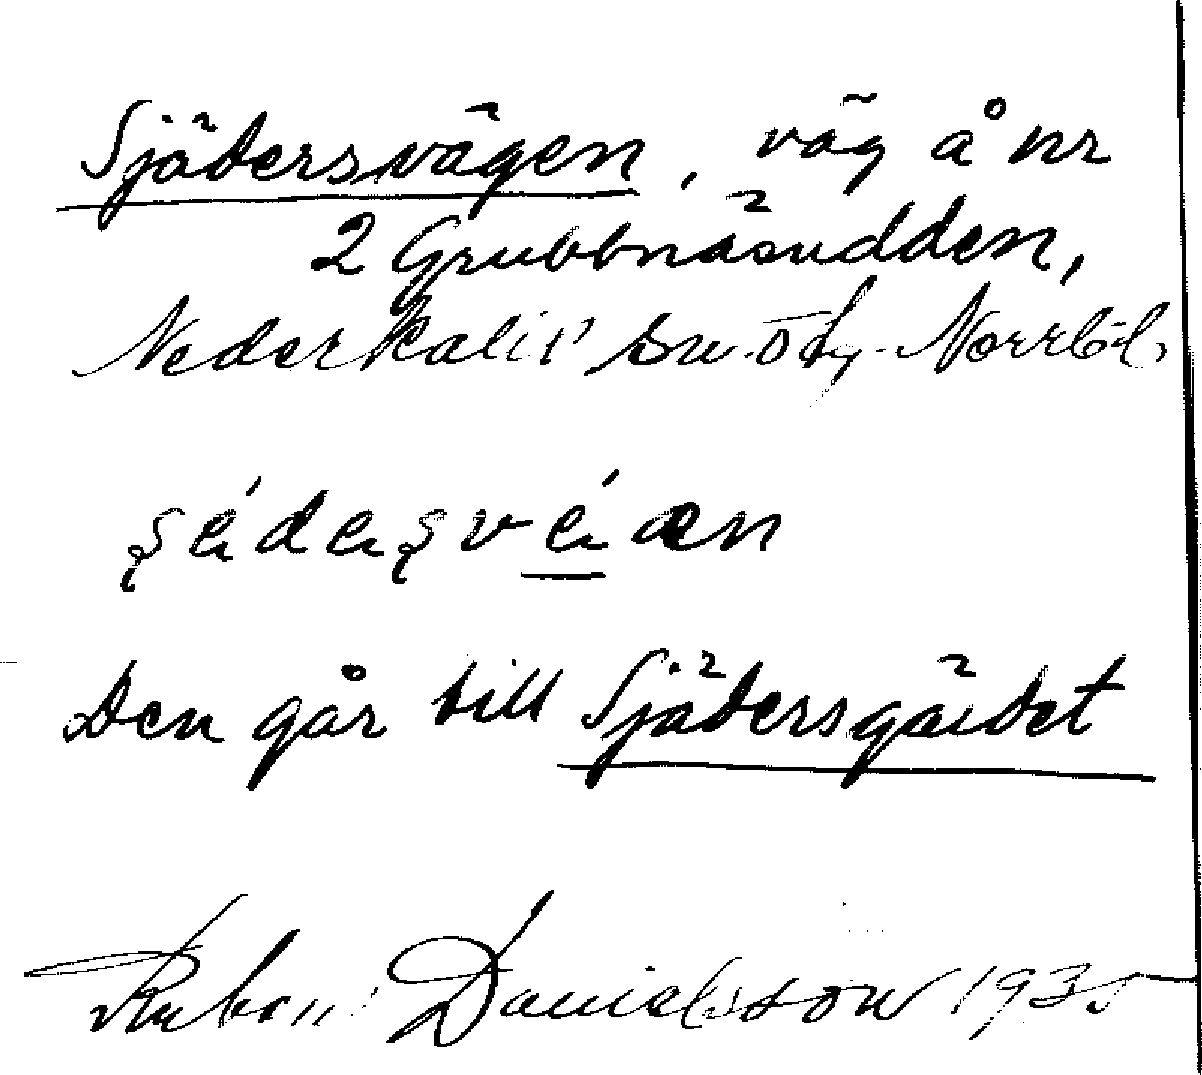 Sjädersvägen, väg å nr
2 Grubbnäsudden,
Nederkalix sn. Norrb. l.
Den går till Sjädersgärdet
Ruben Danielsson 1935